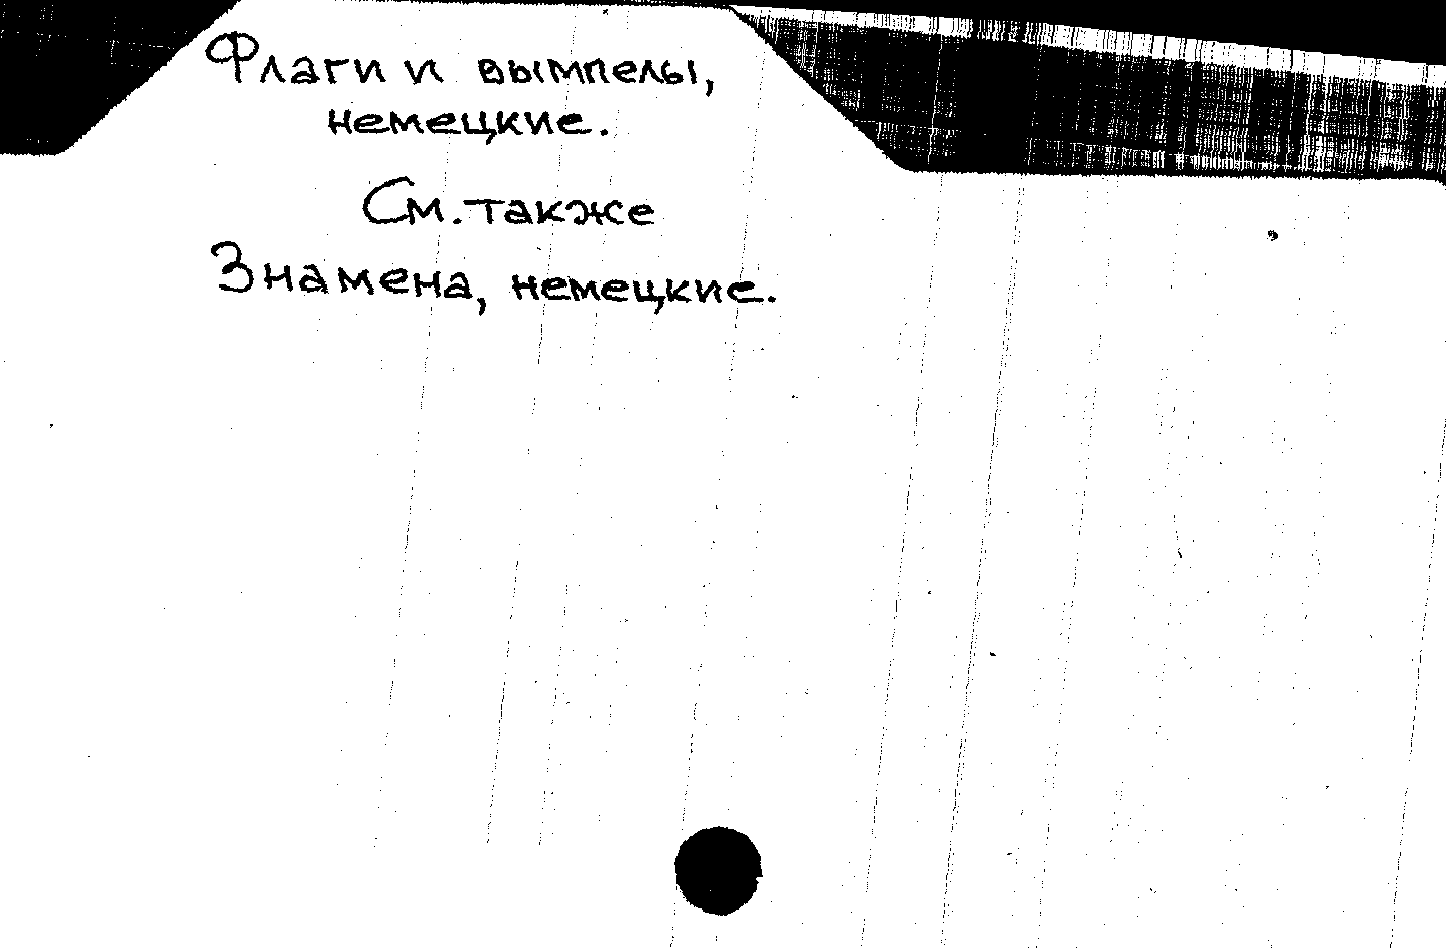 Флаги и вымпелы,
немецкие.
См. также
Знамена, немецкие.